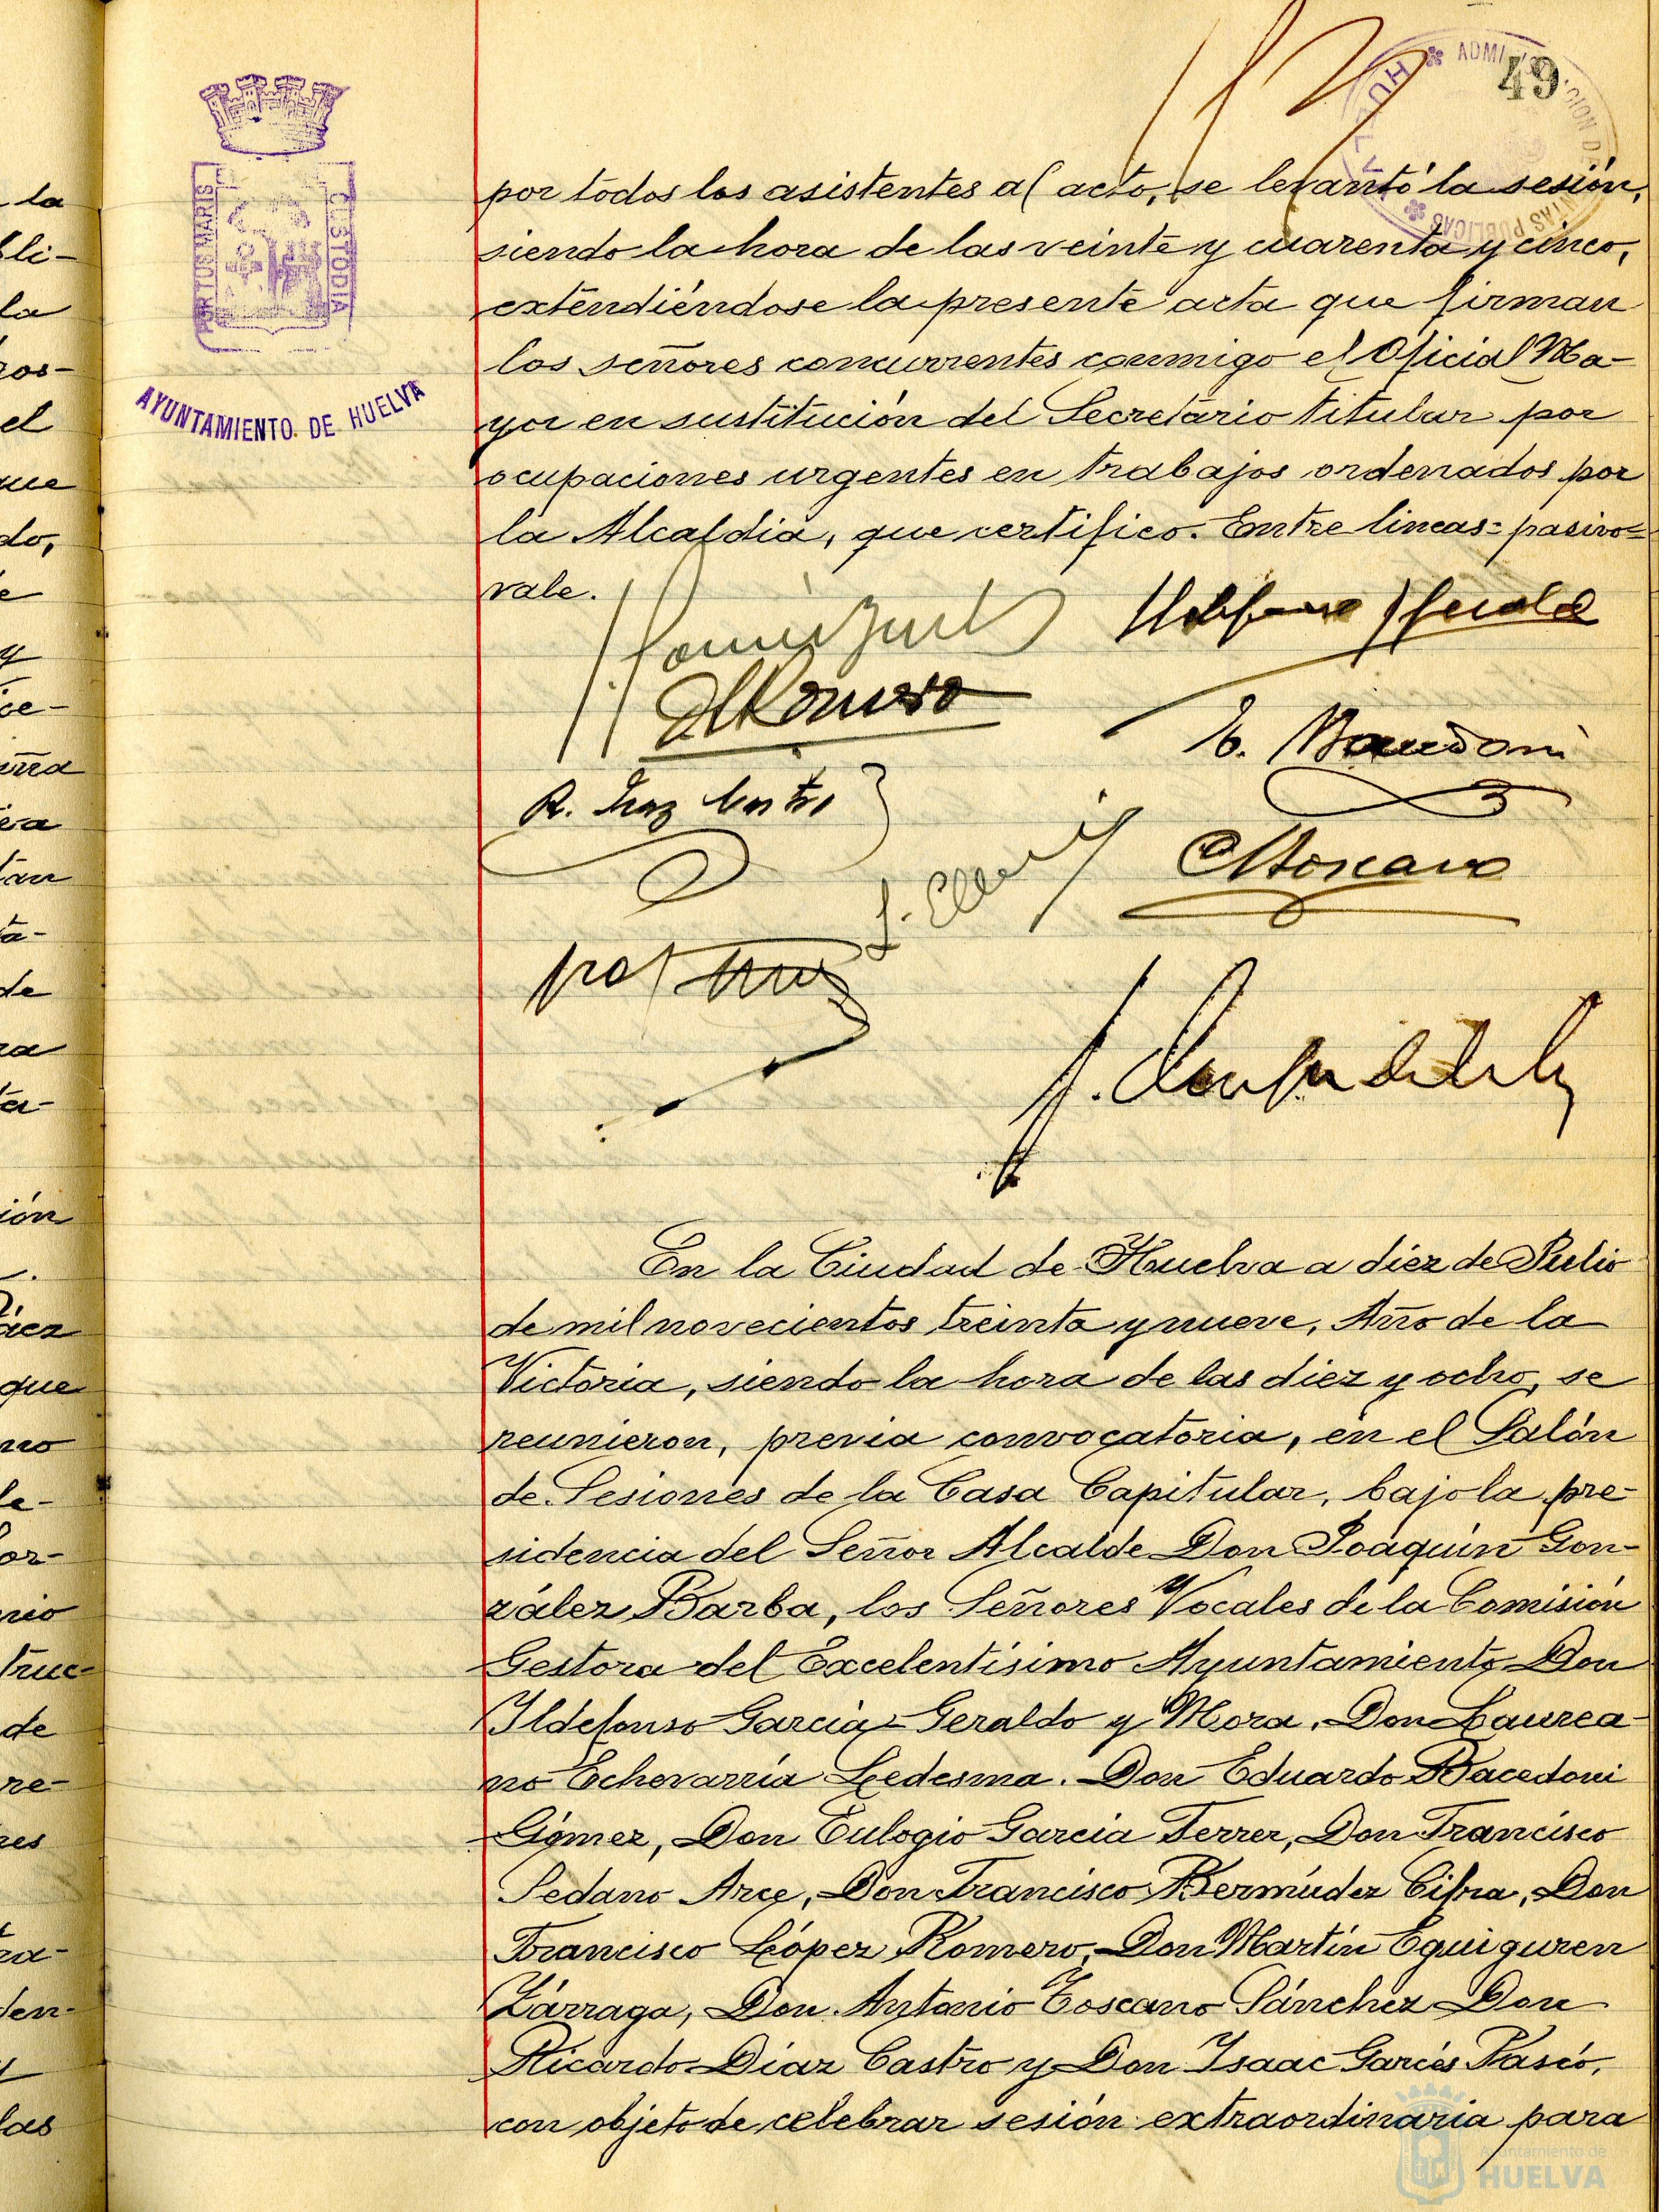 49
PORTUS MARIS
CUSTODIA
AYUNTAMIENTO DE HUELVA
por todos los asistentes al acto, se levantó la sesión,
siendo la hora de las veinte y cuarenta y cinco,
extendiéndose la presente acta que firman
los señores concurrentes conmigo el Oficial Ma-
yor en sustitución del Secretario titular por
ocupaciones urgentes en trabajos ordenados por
la Alcaldia, que certifico. Entre lineas= pasivo=
vale.
Romero
R. Diaz Castro
En la Ciudad de Huelva a diez de Julio
de mil novecientos treinta y nueve, Año de la
Victoria, siendo la hora de las diez y ocho, se
reunieron, previa convocatoria, en el Salón
de Sesiones de la Casa Capitular, bajo la pre-
sidencia del Señor Alcalde Don Joaquín Gon-
zález Barba, los Señores Vocales de la Comisión
Gestora del Excelentísimo Ayuntamiento Don
Ildefonso García-Geraldo y Mora, Don Laurea-
no Echevarría Ledesma. Don Eduardo Bacedoni
Gómez, Don Eulogio García Ferrer, Don Francisco
Sedano Arce, Don Francisco Bermúdez Cifra, Don
Francisco López Romero, Don Martín Eguiguren
Zárraga, Don Antonio Toscano Sánchez Don
Ricardo Díaz Castro y Don Isaac Garcés Pascó,
con objeto de celebrar sesión extraordinaria para
Ayuntamiento de
HUELVA